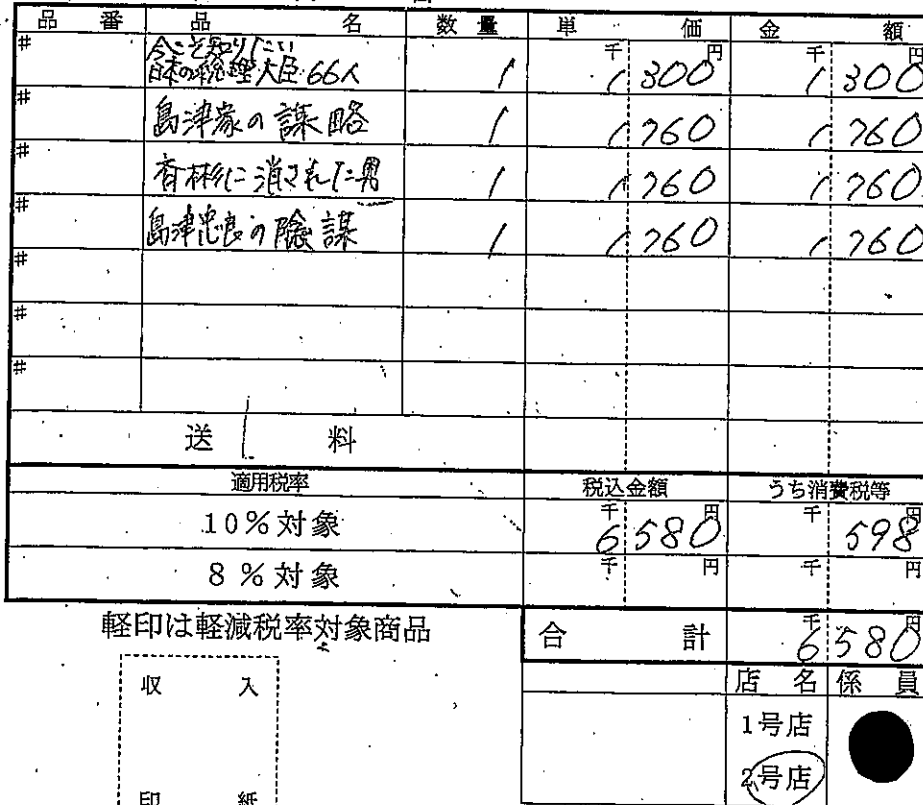 品 番 品 名 数 量 単 価 金 額
# 今こそ知りたい 千 円 千 円
日本の総理大臣66人 1 1 300 1 300
# 島津家の謀略 1 1 760 1 760
# 香彬に消された男 1 1 760 1 760
# 島津忠良の陰謀 1 1 760 1 760
#
#
#
送 料
適用税率 税込金額 うち消費税等
10%対象 千 円 6 580 千 円 598
8%対象 千 円 千 円
軽印は軽減税率対象商品 合 計 千 円 6 580
収 入 店 名 係 員
1号店
印 紙 2号店